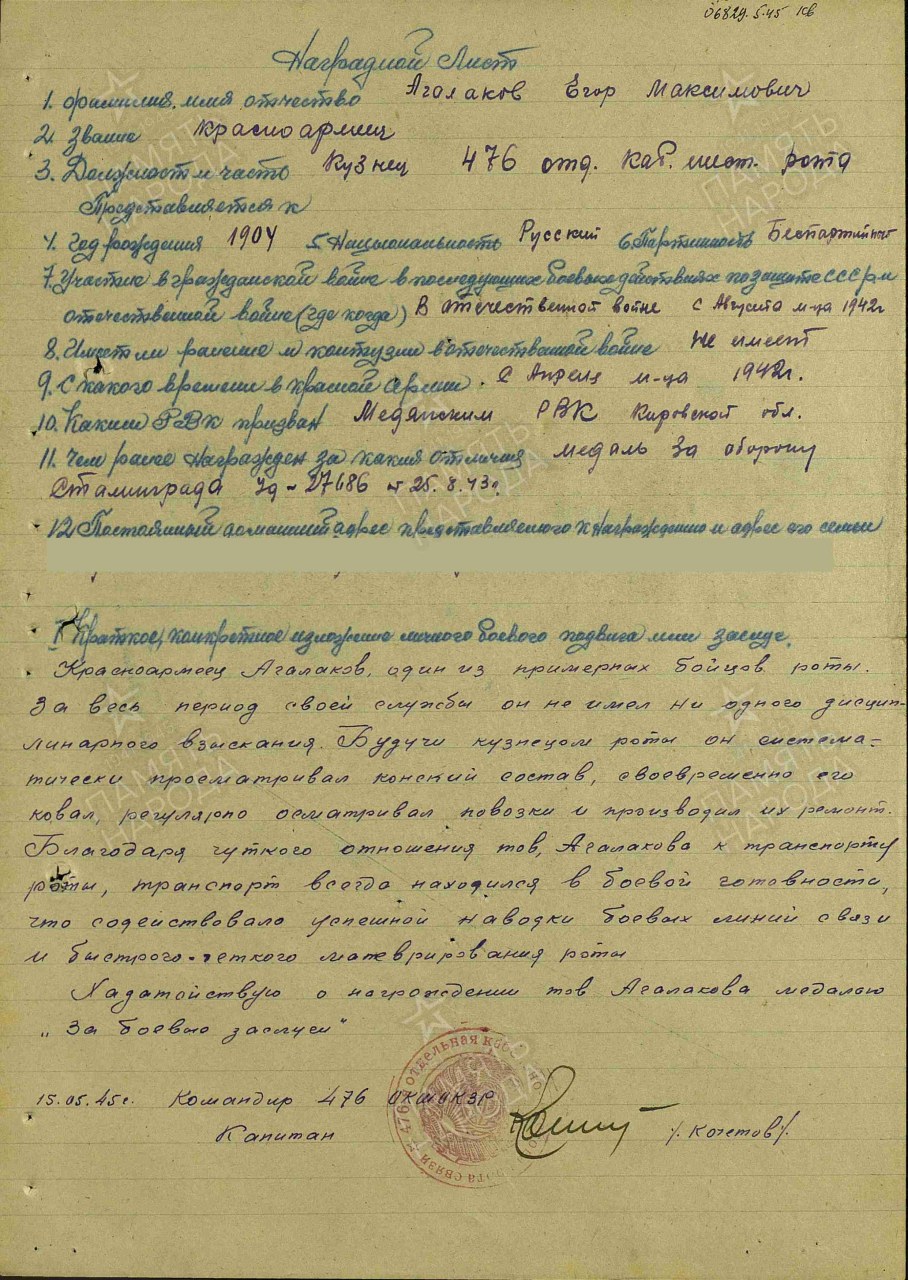 06829. 5.45 кв
Наградной Лист
1. фамилия. имя отчество Агалаков Егор Максимович
2. Звание красноармиец
3. Должност и часть Кузнец 476 отд. каб. шест. рота
Представляется к
4. Год рождения 1904 5. Нацыональность Русский 6. Партийность Беспартийный
7. Участие в гражданской войне в последующих боевых действиях по защите СССР и
отечественной войне (где когда) В отечественной войне с Августа м-ца 1942г
8. Имет ли ранение и контузии в отечественной войне Не имеет
9. С какого времени в красной армии. с Апреля м-ца 1942г.
10. Каким РВК призван Медянским РВК Кировской обл.
11. Чем ранее Награжден за какия отличия медаль За оборону
Сталинграда Уд-27686 от 25.8.43г.
12 Постоянный домашний адрес представляемого к Награждению и адрес его семьи
I Краткое, конкретное изложение личного боевого подвига или заслуг.
Красноармеец Агалаков, один из примерных бойцов роты.
За весь период своей службы он не имел ни одного дисцип-
линарного взыскания. Будучи кузнецом роты он система-
тически просматривал конский состав, своевременно его
ковал, регулярно осматривал повозки и производил их ремонт.
Благодаря чуткого отношения тов, Агалакова к транспорту
роты, транспорт всегда находился в боевой готовности,
что содействовало успешной наводки боевых линий связи
и быстрого-четкого маневрирования роты
Хадатойствую о награждении тов Агалакова медалью
„За боевые заслуги"
15.05.45г. Командир 476 ОКШОКЗР
Капитан /. Кочетов/.
476 отдельная каб рота связи
ПАМЯТЬ
НАРОДА